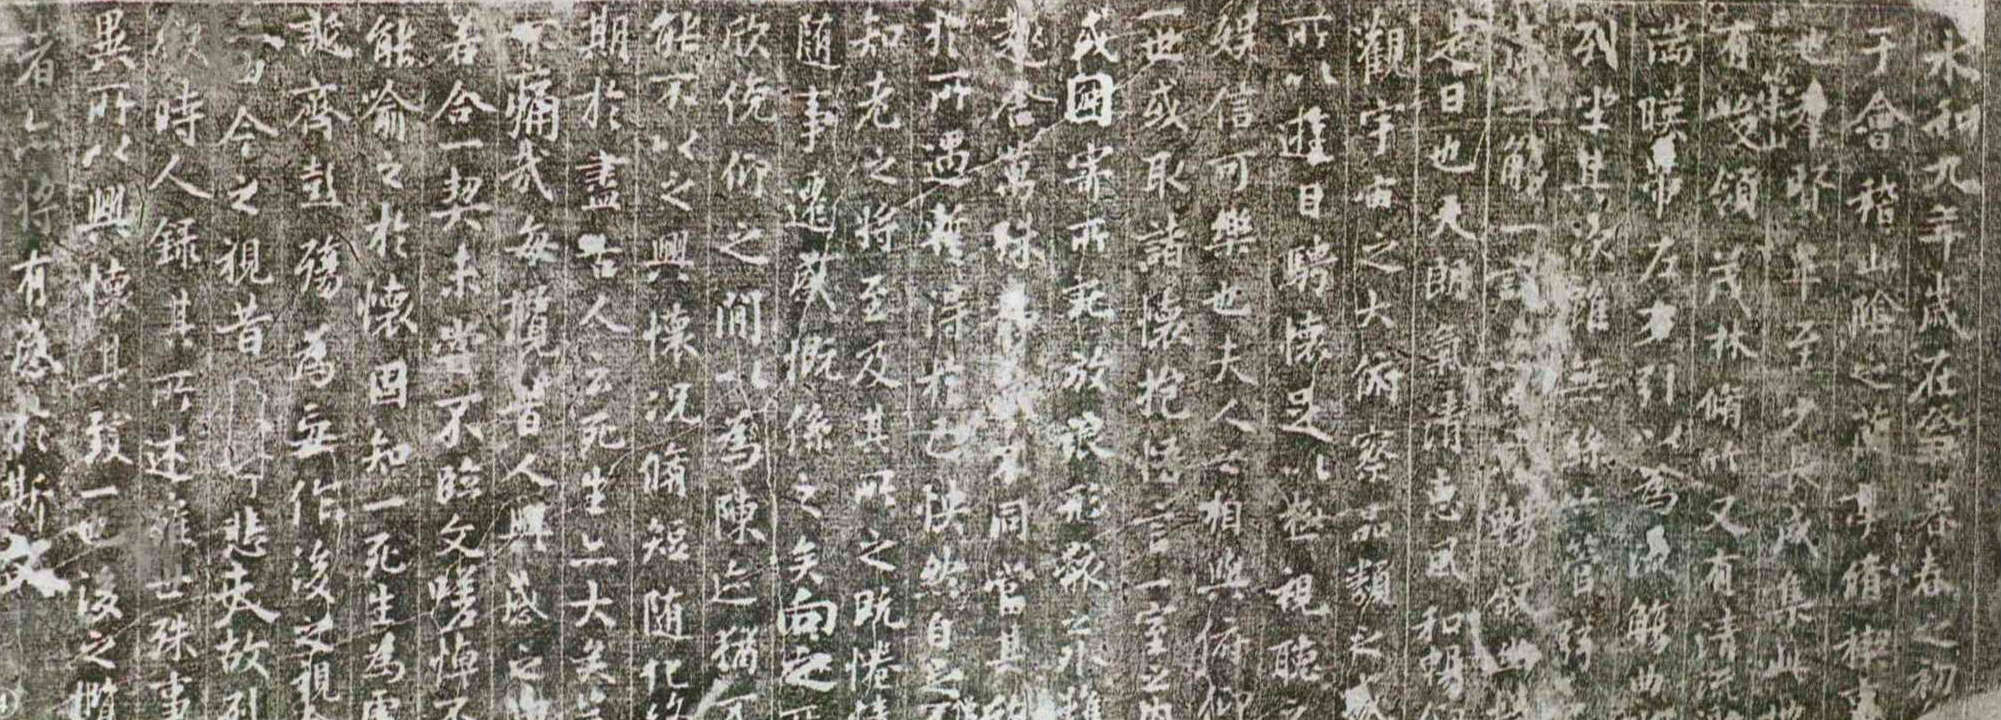 永和九年歲在癸丑暮春之初
于會稽山陰之蘭亭脩稧事
也羣賢畢至少長咸集此地
有崇山峻領茂林脩竹又有清流
湍暎帶左右引以為流觴曲
列坐其次雖無絲竹管弦
盛一觴一詠亦足以暢叙幽情
是日也天朗氣清惠風和暢仰
觀宇宙之大俯察品類之盛
所以遊目騁懷足以極視聽之
娛信可樂也夫人之相與俯仰
一世或取諸懷抱悟言一室之內
或因寄所託放浪形骸之外雖
趣舍萬殊靜躁不同當其欣
於所遇蹔得於己快然自足不
知老之將至及其所之既惓情
隨事遷感慨係之矣向之所
欣俛仰之閒以為陳迹猶不
能不以之興懷況脩短隨化終
期於盡古人云死生亦大矣豈
不痛哉每攬昔人興感之由
若合一契未嘗不臨文嗟悼不
能喻之於懷固知一死生為虛
誕齊彭殤為妄作後之視今
亦由今之視昔悲夫故列
敘時人錄其所述雖世殊事
異所以興懷其致一也後之攬
者亦將有感於斯文